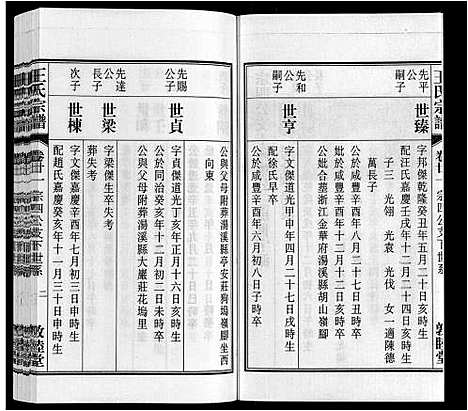 王氏宗譜
卷廿一 宗四公支下世系
敦睦堂
先平公嗣子
世臻
字邦傑乾隆癸丑年五月二十日亥時生
配汪氏嘉慶壬戌年十二月二十四日亥時生
子三 光翎 光袁 光伐 女一適陳德
萬長子
公於咸豐辛酉年八月二十七日丑時卒
妣於咸豐辛酉年十二月十二日亥時卒
公妣合塟浙江金華府湯溪縣胡山嶺脚
先和公嗣子
世亨
字文傑道光甲申年四月二十七日戌時生
配徐氏早卒
公於咸豐辛酉年六月初八日子時卒
公與父母附葬湯溪縣亭安莊狗塢嶺脚坐西
向東
先賜公子
世貞
字貞傑道光丁亥年正月十六日亥時生
公於同治癸亥年十二月初二日未時卒
公與父母附葬湯溪縣大巖莊花塢里
先達公長子
世梁
字梁傑生卒失考
葬失考
次子
世棟
字文傑嘉慶辛酉年七月初三日申時生
配趙氏嘉慶癸亥年十一月十三日申時生
王氏宗譜
卷廿一 宗四公支下世系
二
敦睦堂